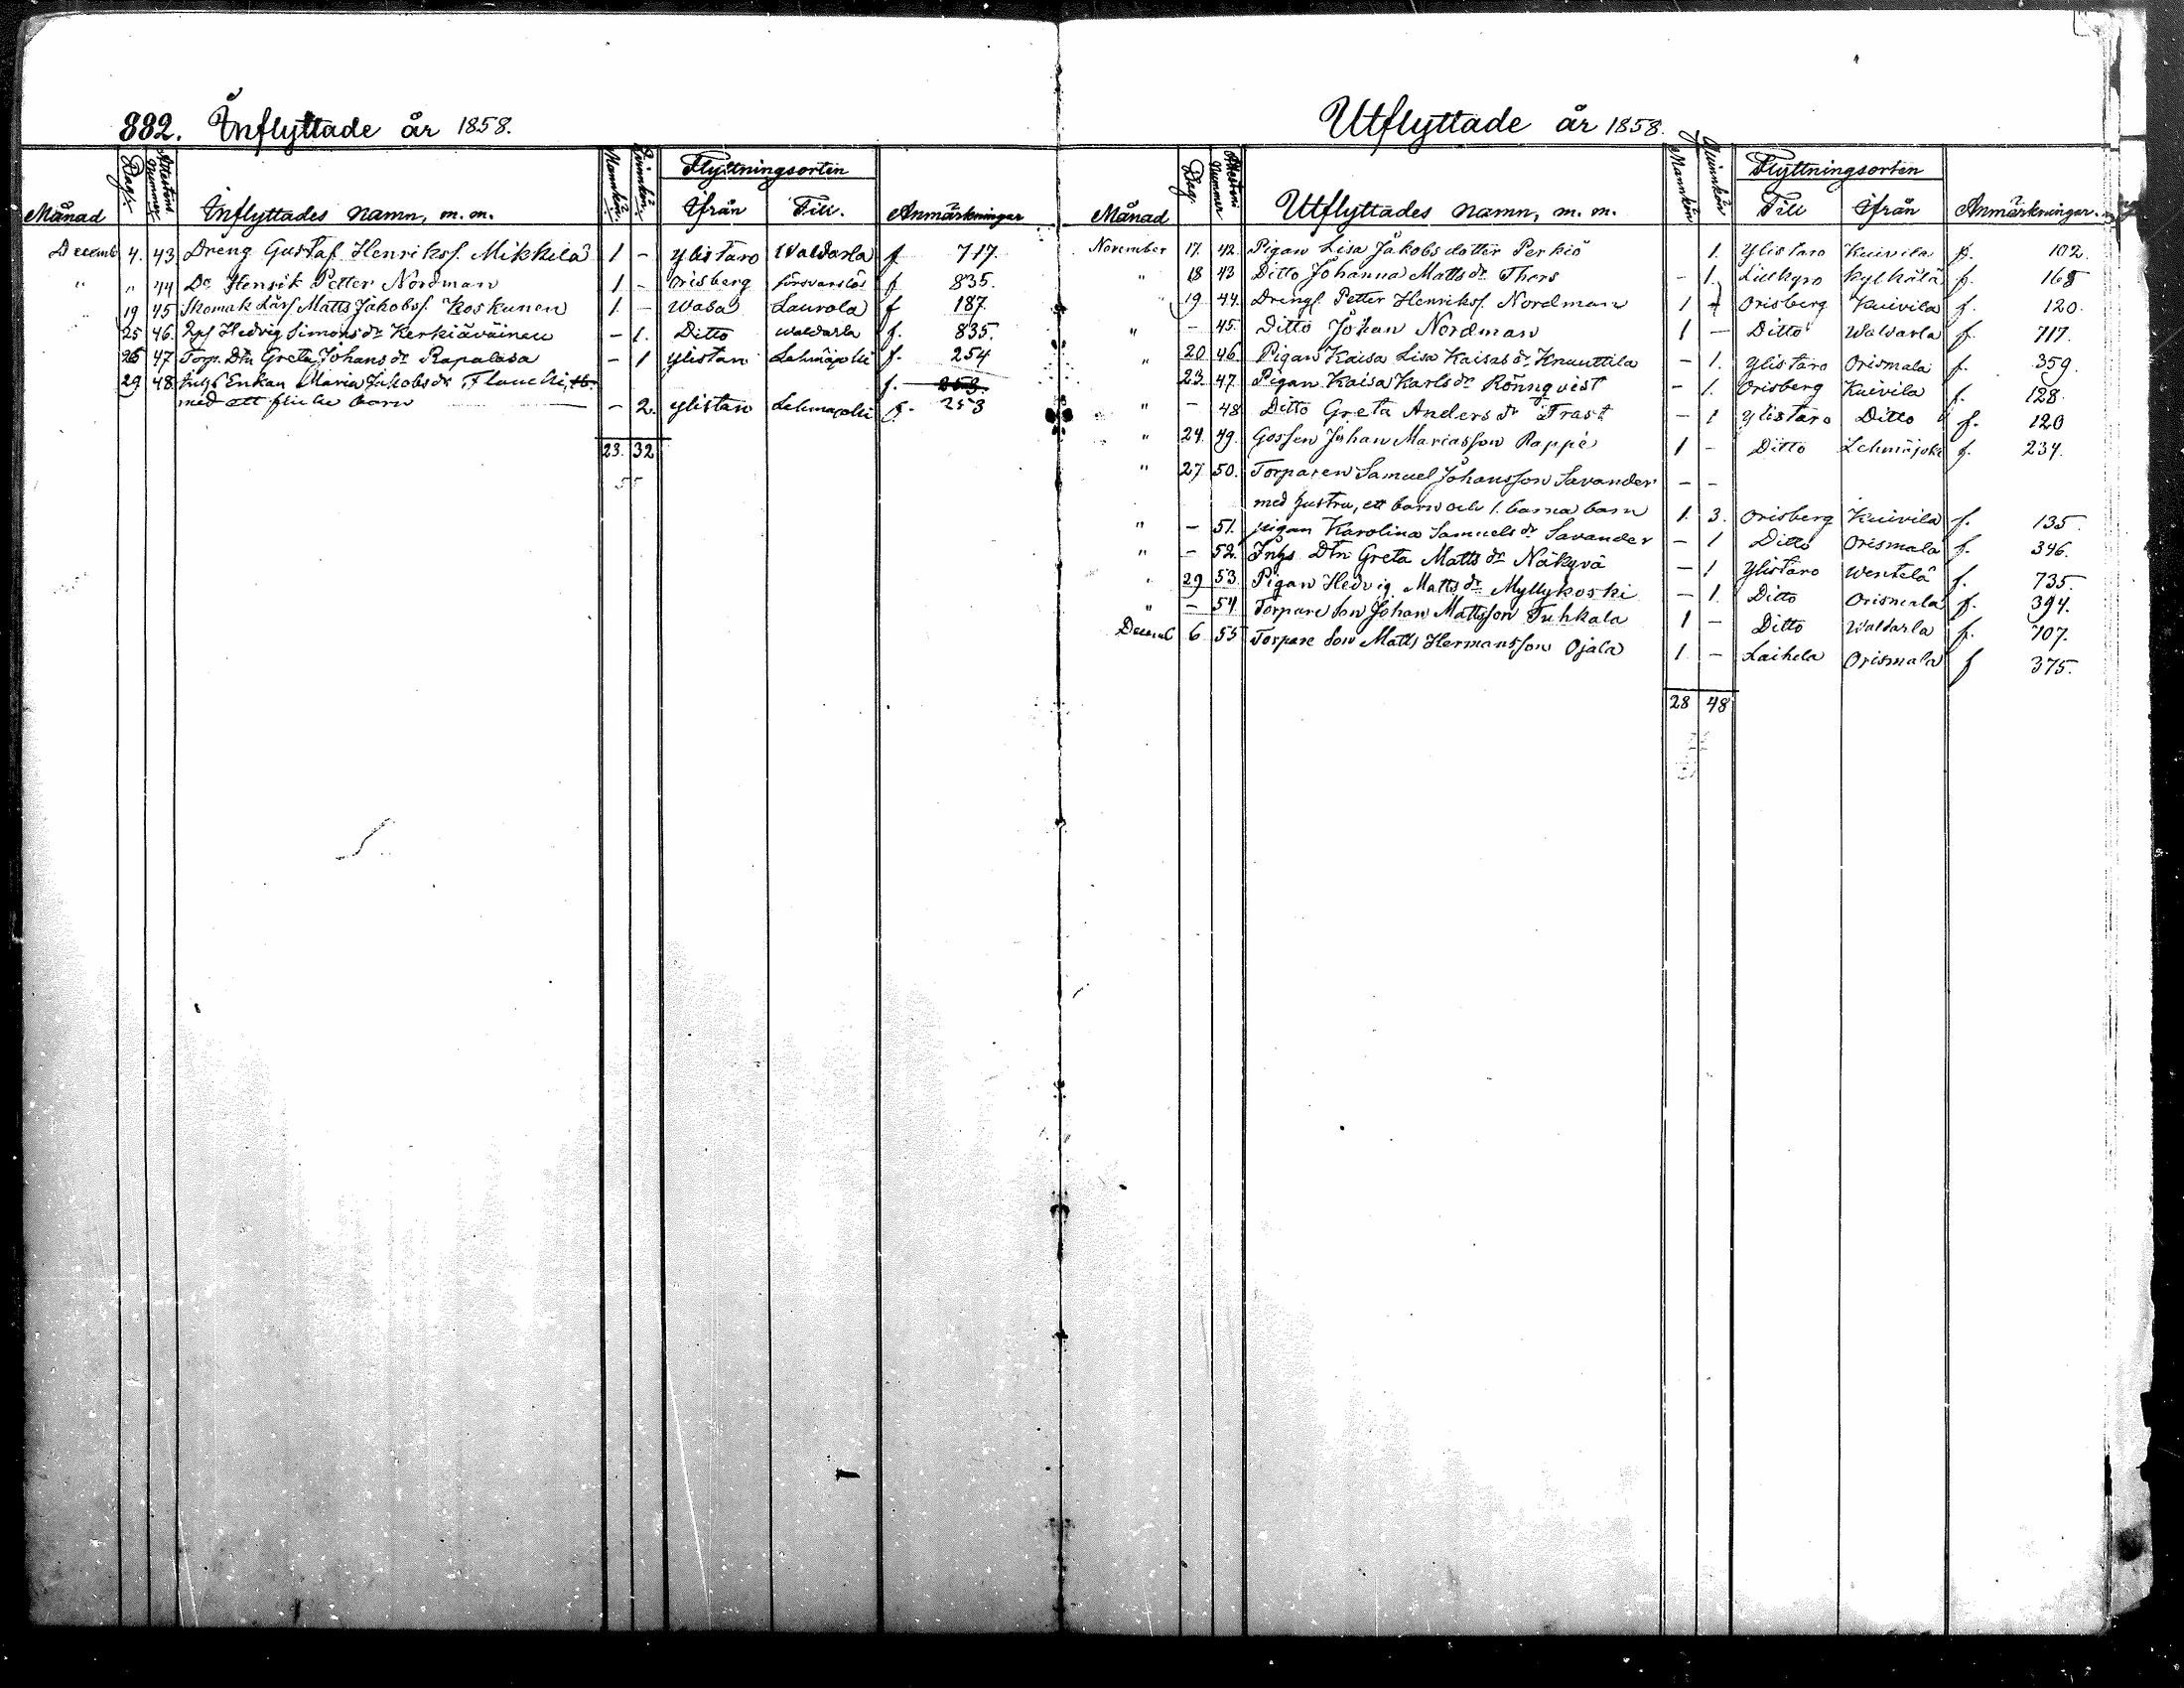 882. Inflyttade år 1858.
Månad Dag. Attestens Nummer Inflyttades namn, m. m. Mannkön. Qvinnkön. Flyttningsorten Ifrån Till. Anmärkningar
Decemb 4. 43. Dreng Gustaf Henrikss. Mikkilä 1 - Ylistaro Waldarla f 717.
" " 44 Do Henrik Petter Nordman 1 - Orisberg försvarslös f 835.
" 19 45 Skomak Lärl Matts Jakobss. Koskunen 1. - Wasa Laurola f 187.
25 46. Hedvig Simons dr Kerkiäväinen - 1. Ditto Waldarla f. 835.
26 47 Torp. Dtn Greta Johans dr Rapalasa - 1 Ylistaro Lehmäjoki f. 254
29 48 Enkan Maria Jakobs dr f. 253.
med ett barn - 2. Ylistaro Lehmäjoki f. 253
23. 32
55
Utflyttade år 1858.
Månad Dag. Attestens Nummer Utflyttades namn, m. m. Mannkön Qvinnkön Flyttningsorten Till Ifrån Anmärkningar.
November 17. 42. Pigan Lisa Jakobs dotter Perkiö 1. Ylistaro Kuivila f. 102.
" 18 43 Ditto Johanna Matts dr Thors - 1. Lillkyro Kylkälä f. 165
" 19 44. Drengs. Petter Henrikss. Nordman 1 - Orisberg Kuivila f. 120.
" - 45. Ditto Johan Nordman 1 - Ditto Waldarla f. 717.
" 20 46. Pigan Kaisa Lisa Kaisas dr Knuuttila - 1. Ylistaro Orismala f. 359.
23. 47. Pigan Kaisa Karls dr Rönnqvist - 1. Orisberg Kuivila f. 128.
" - 48 Ditto Greta Anders dr Trast - 1 Ylistaro Ditto f. 120
" 24. 49. Gossen Johan Mariasson Rappe 1 - Ditto Lehmäjoki f. 234.
" 27 50. Torparen Samuel Johansson Savander - -
med hustru, ett barn och 1. barna barn 1. 3. Orisberg Kuivila f. 135.
" - 51. pigan Karolina Samuels dr Savander - 1 Ditto Orismala f. 346.
" - 52. Inhs Dtn Greta Matts dr Näkyvä - 1 Ylistaro Wentelä f. 735.
" 29 53. Pigan Hedvig Matts dr Myllykoski - 1. Ditto Orismala f. 394.
" - 54 Torpare Son Johan Mattsson Tuhkala 1 - Ditto Waldarla f. 707.
Decemb 6. 55 Torpare Son Matts Hermansson Ojala 1. - Laihela Orismala f 375.
28 48